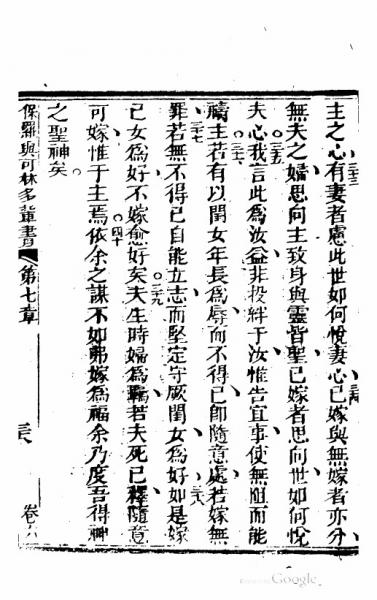 主之心三三有妻者慮此世如何悅妻心三四已嫁與無嫁者亦分
無夫之婦思向主致身與靈皆聖已嫁者思向世如何悅
夫心三五我言此為汝益非投絆于汝惟告宜事使無阻而能
禱主三六若有以閨女年長為辱而不得已即隨意處若嫁無
罪三七若無不得已自能立志而堅定守厥閨女為好三八如是嫁
已女為好不嫁愈好矣三九夫生時婦為羈若夫死已釋隨意
可嫁惟于主焉四十依余之謀不如弗嫁為福余乃度吾得神
之聖神矣
保羅與可林多輩書 第七章 卷六
Google